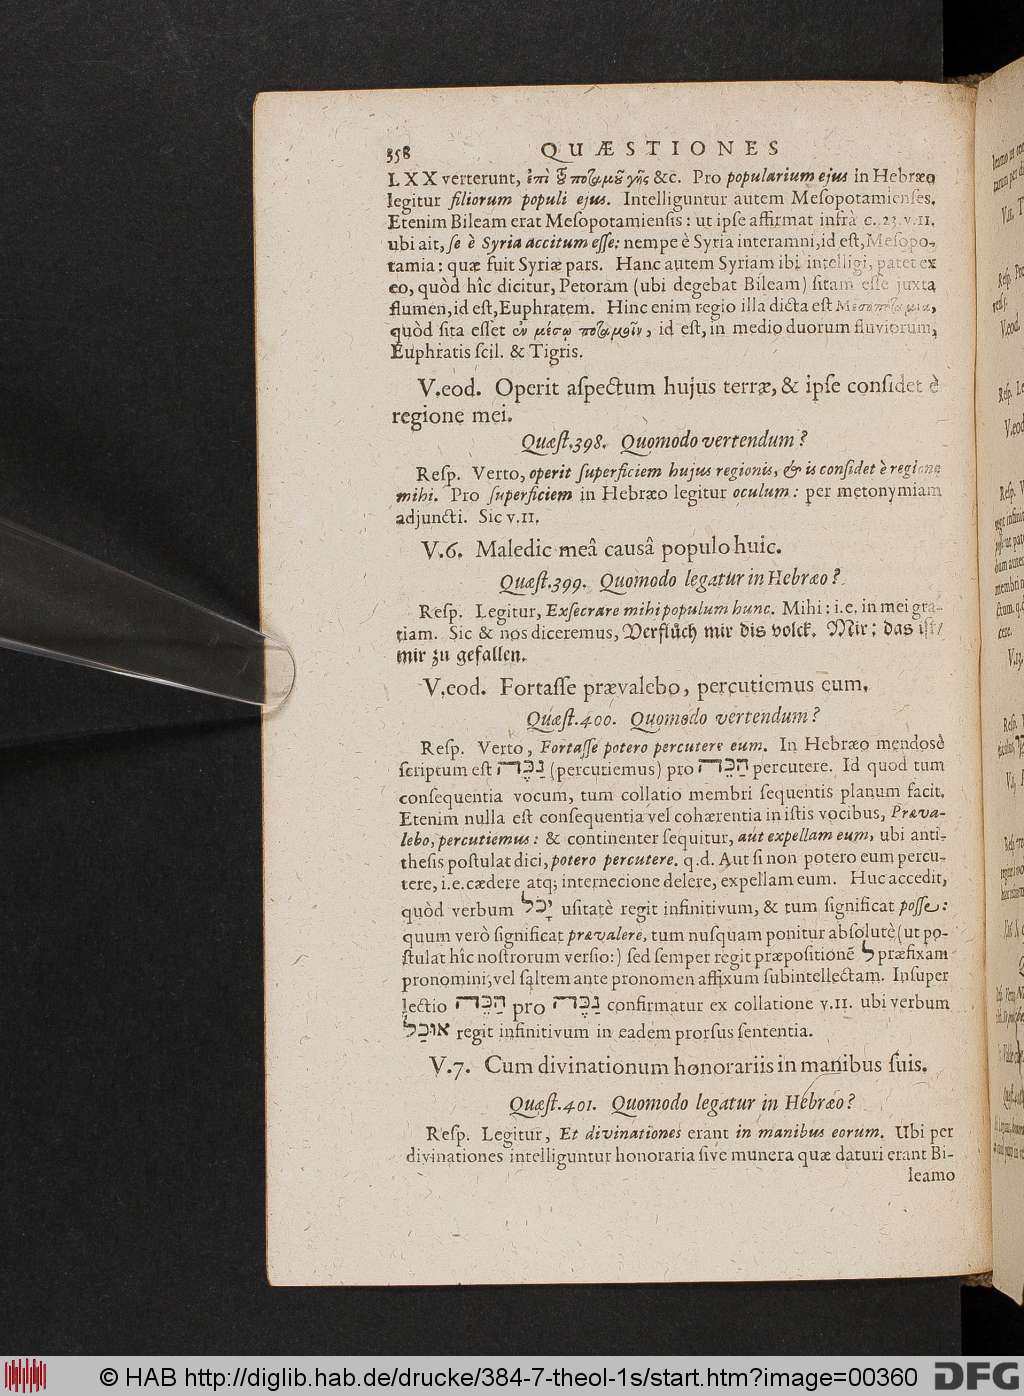 358 QUÆSTIONES
LXX verterunt, ἐπὶ τοῦ ποταμοῦ γῆς &c. Pro popularium ejus in Hebræo
legitur filiorum populi ejus. Intelliguntur autem Meſopotamienſes.
Etenim Bileam erat Meſopotamienſis: ut ipſe affirmat infrà c. 23. v. 11.
ubi ait, ſe è Syria accitum eſſe: nempe è Syria interamni, id eſt, Meſopo-
tamia: quæ fuit Syriæ pars. Hanc autem Syriam ibi intelligi, patet ex
eo, quòd hîc dicitur, Petoram (ubi degebat Bileam) ſitam eſſe juxta
flumen, id eſt, Euphratem. Hinc enim regio illa dicta eſt Μεσοποταμία,
quòd ſita eſſet ἐν μέσῳ ποταμοῖν, id eſt, in medio duorum fluviorum,
Euphratis ſcil. & Tigris.
V. eod. Operit aſpectum hujus terræ, & ipſe conſidet è
regione mei.
Quæſt. 398. Quomodo vertendum?
Reſp. Verto, operit ſuperficiem hujus regionis, & is conſidet è regione
mihi. Pro ſuperficiem in Hebræo legitur oculum: per metonymiam
adjuncti. Sic v. 11.
V. 6. Maledic meâ causâ populo huic.
Quæſt. 399. Quomodo legatur in Hebræo?
Reſp. Legitur, Exſecrare mihi populum hunc. Mihi: i. e. in mei gra-
tiam. Sic & nos diceremus, Verflůch mir dis volck. Mir: das iſt/
mir zu gefallen.
V. eod. Fortaſſe prævalebo, percutiemus eum.
Quæſt. 400. Quomodo vertendum?
Reſp. Verto, Fortaſſe potero percutere eum. In Hebræo mendosè
ſcriptum eſt נַכֶּה (percutiemus) pro הַכֵּה percutere. Id quod tum
conſequentia vocum, tum collatio membri ſequentis planum facit.
Etenim nulla eſt conſequentia vel cohærentia in iſtis vocibus, Præva-
lebo, percutiemus: & continenter ſequitur, aut expellam eum, ubi anti-
theſis poſtulat dici, potero percutere. q. d. Aut ſi non potero eum percu-
tere, i. e. cædere atq; internecione delere, expellam eum. Huc accedit,
quòd verbum יָכֹל uſitatè regit infinitivum, & tum ſignificat poſſe:
quum verò ſignificat prævalere, tum nuſquam ponitur abſolutè (ut po-
ſtulat hîc noſtrorum verſio:) ſed ſemper regit præpoſitionē ל præfixam
pronomini, vel ſaltem ante pronomen affixum ſubintellectam. Inſuper
lectio הַכֵּה pro נַכֶּה confirmatur ex collatione v. 11. ubi verbum
אוּכַל regit infinitivum in eadem prorſus ſententia.
V. 7. Cum divinationum honorariis in manibus ſuis.
Quæſt. 401. Quomodo legatur in Hebræo?
Reſp. Legitur, Et divinationes erant in manibus eorum. Ubi per
divinationes intelliguntur honoraria ſive munera quæ daturi erant Bi-
leamo
© HAB http://diglib.hab.de/drucke/384-7-theol-1s/start.htm?image=00360
DFG